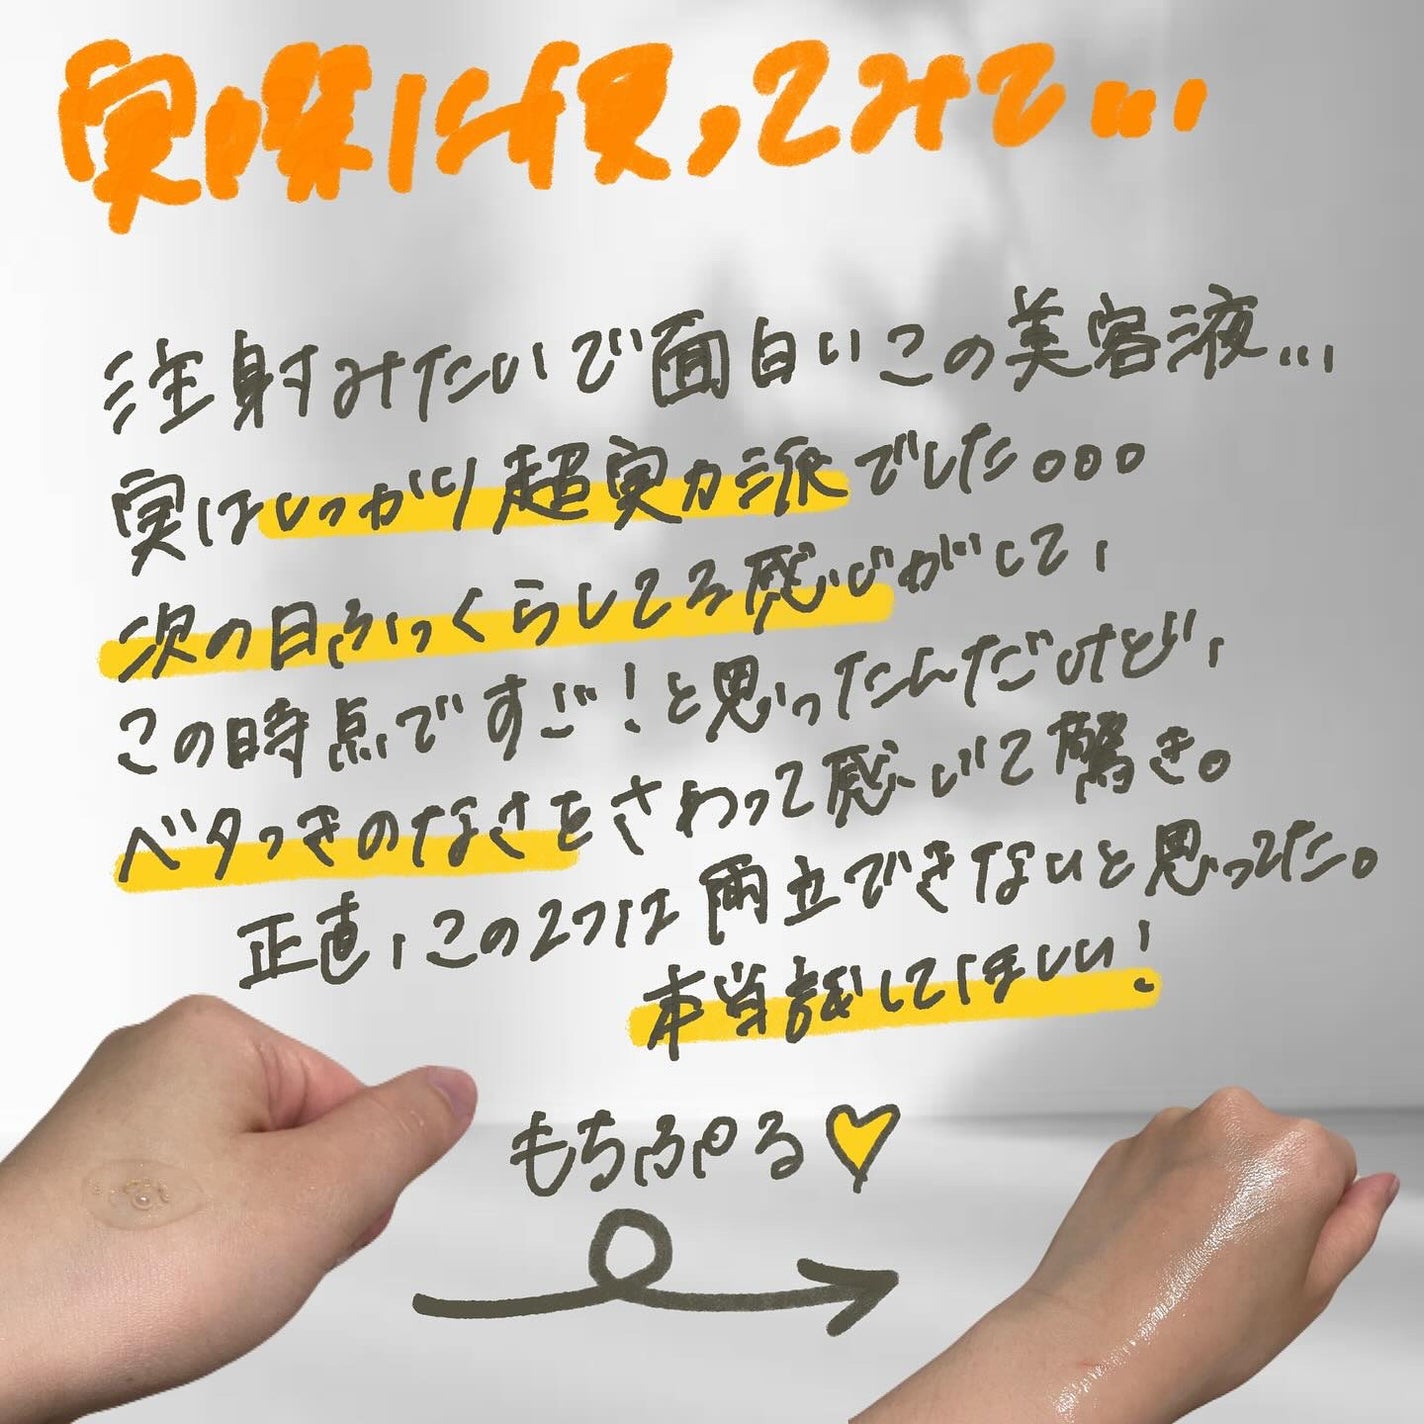 実際に使ってみて...
注射みたいで面白いこの美容液...
実はしっかり超実力派でした。。。
次の日ふっくらしてる感じがして、
この時点ですご!と思ったんだけど、
ベタつきのなさをさわって感じて驚き。
正直、この2つは両立できないと思ってた。
本当試してほしい!
もちぷる